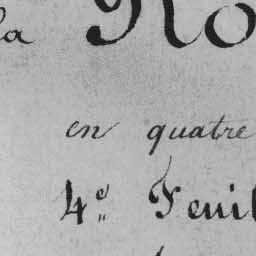 la Ro
en quatre
4e Feuil